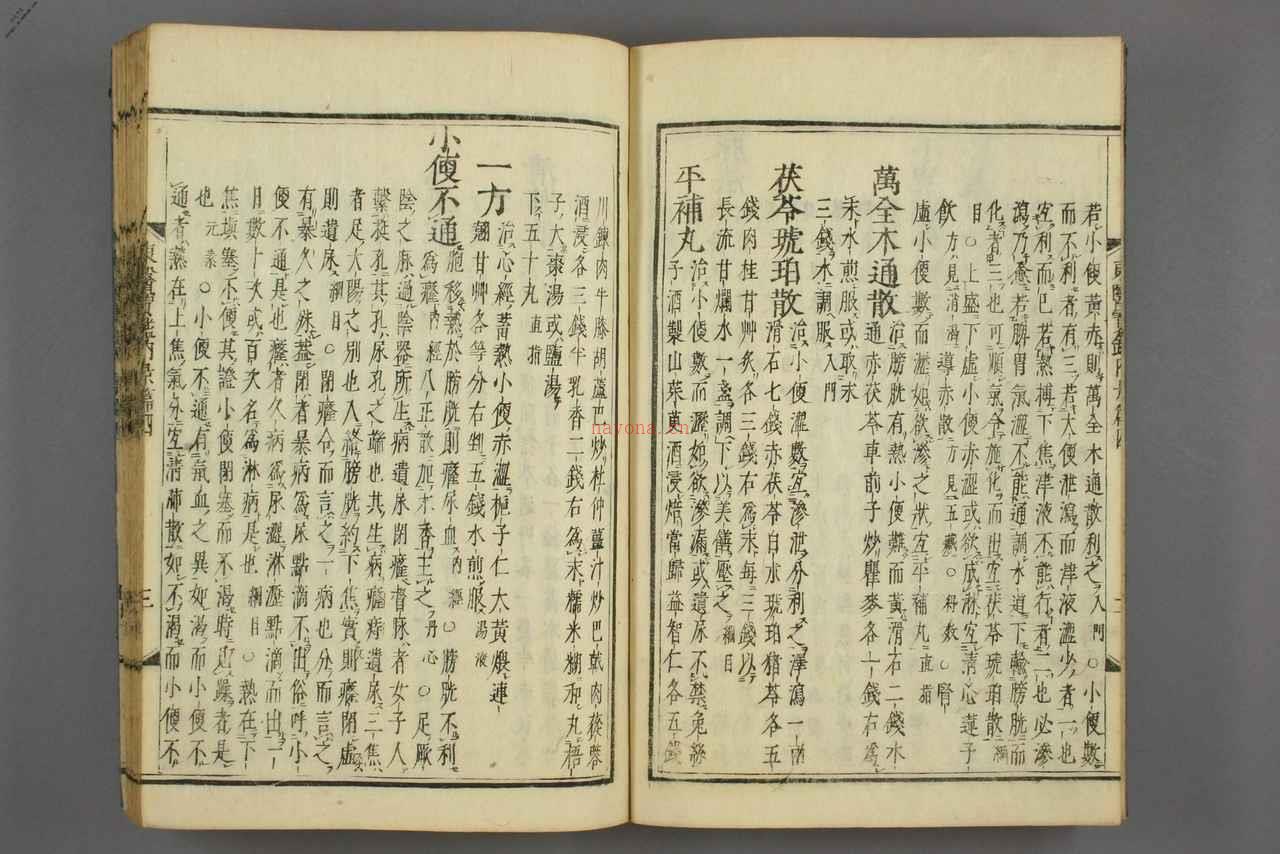 若小便黃赤則萬全木通散利之入門○小便數
而不利者有三若大便泄瀉而津液澁少者一也
宜利而已若熱搏下焦津液不能行者二也必滲
瀉乃愈若脾胃氣澁不能通調水道下輸膀胱而
化者三也可順氣令施化而出宜茯苓琥珀散綱
目○上盛下虛小便赤澁或欲成淋宜淸心蓮子
飮方見消渴導赤散方見五藏○料數○腎
虛小便數而瀝如欲滲之狀宜平補丸直指
萬全木通散治膀胱有熱小便難而黃滑石二錢水
通赤茯苓車前子炒瞿麥各一錢右爲
末水煎服或取末
三錢水調服入門
茯苓琥珀散治小便澁數宜滲泄分利之澤瀉一兩
滑石七錢赤茯苓白朮琥珀猪苓各五
錢肉桂甘艸炙各三錢右爲末每三錢以
長流甘爛水一盞調下以美饍壓之綱目
平補丸治小便數而瀝如欲滲漏或遺尿不禁兔絲
子酒製山茱萸酒浸焙當歸益智仁各五錢
川鍊肉牛膝胡蘆巴炒杜仲薑汁炒巴戟肉蓯蓉
酒浸各三錢半乳香二錢右爲末糯米糊和丸梧
子大棗湯或鹽湯
下五十丸直指
一方治心經蓄熱小便赤澁梔子仁大黃煨連
翹甘艸各等分右剉五錢水煎服湯液
小便不通胞移熱於膀胱則癃尿血內經○膀胱不利
爲癃內經八正散加木香主之丹心○足厥
陰之脉過陰器所生病遺尿閉癃督脉者女子入
繫挺孔其孔尿孔之端也其生病癃痔遺尿三焦
者足大陽之別也入絡膀胱約下焦實則癃閉虛
則遺尿綱目○閉癃合而言之一病也分而言之
有暴久之殊盖閉者暴病爲尿點滴不出俗呼小
便不通是也癃者久病爲尿澁淋瀝點滴而出一
日數十次或百次名爲淋病是也綱目○熱在下
焦塡塞不便其證小便閉塞而不渴時見躁者是
也元素○小便不通有氣血之異如渴而小便不
通者熱在上焦氣分宜淸肺散如不渴而小便不